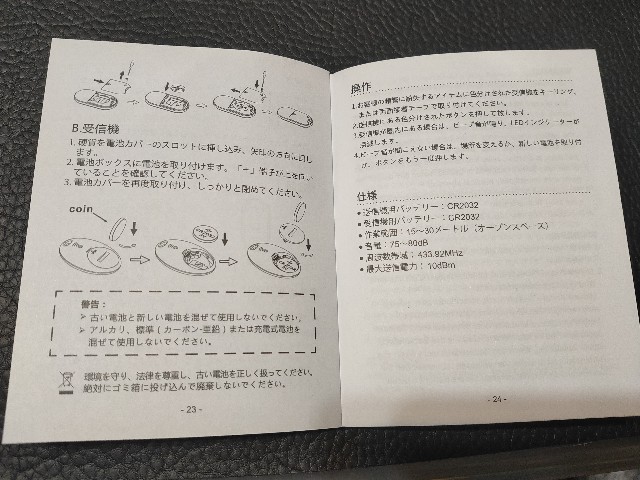 B.受信機
1. 硬貨を電池カバーのスロットに挿し込み、矢印の方向に回し
ます。
2. 電池ボックスに電池を取り付けます。「+」端子が上を向い
ていることを確認してください。
3. 電池カバーを再度取り付け、しっかりと閉めてください。
coin
警告：
➢ 古い電池と新しい電池を混ぜて使用しないでください。
➢ アルカリ、標準 ( カーボン-亜鉛 ) または充電式電池を
混ぜて使用しないでください。
環境を守り、法律を尊重し、古い電池を正しく扱ってください。
絶対にゴミ箱に投げ込んで廃棄しないでください。
- 23 -
操作
1.お客様の頻繁に紛失するアイテムに色分けされた受信機をキーリング、
または両面接着テープで取り付けてください。
2.送信機にある色分けされたボタンを押して放します。
3.受信機が範囲にある場合は、ビープ音が鳴り、LEDインジケーターが
点滅します。
4.ビープ音が聞こえない場合は、場所を変えるか、新しい電池を取り付
け、ボタンをもう一度押します。
仕様
● 送信機用バッテリー：CR2032
● 受信機用バッテリー：CR2032
● 作業範囲：15～30メートル（オープンスペース）
● 音量：75～80dB
● 周波数帯域：433.92MHz
● 最大送信電力：10dBm
- 24 -